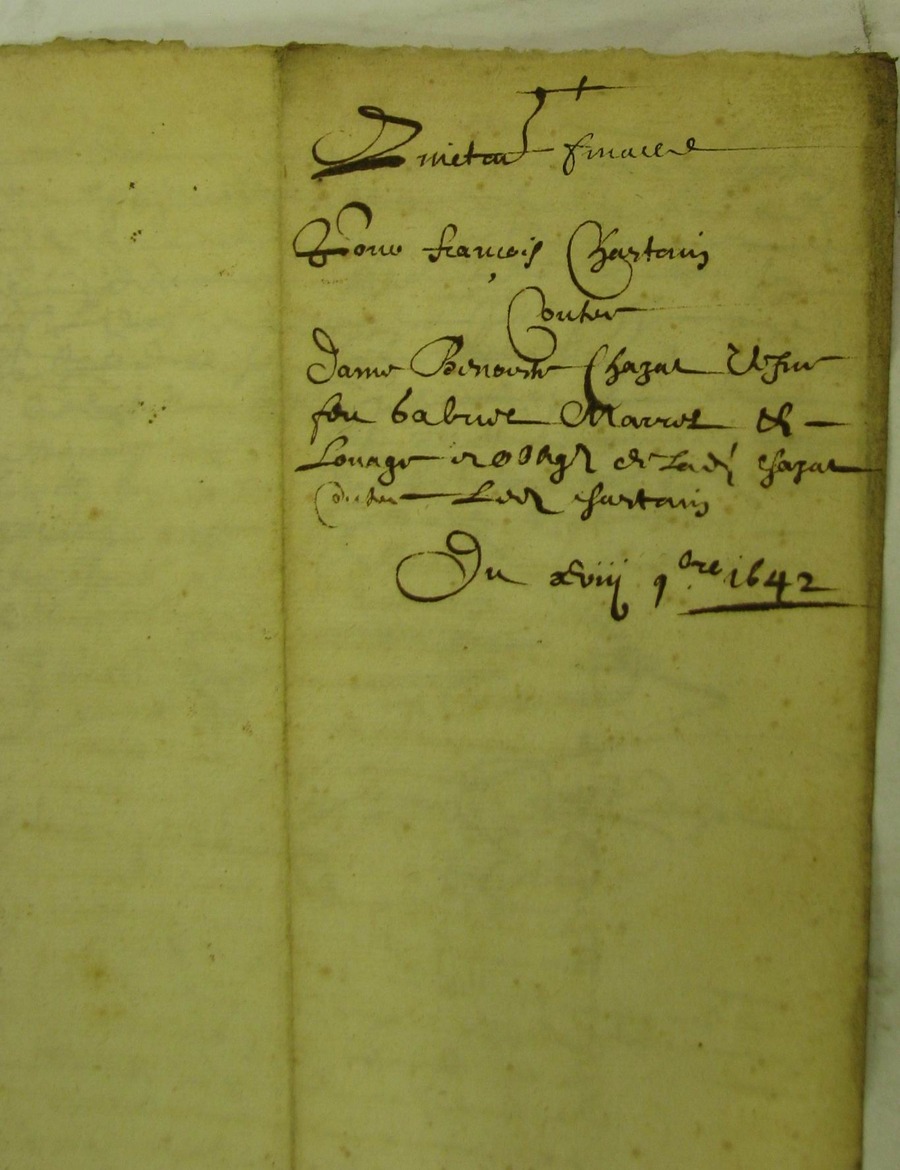 Quictance finalle
Pour françois Chartain
Contre
dame Benoiste Chazal Vefve
feu Gabriel Marrel Et
Louage de lad chazal
Contre Led chartain
Du xviij 9bre 1642